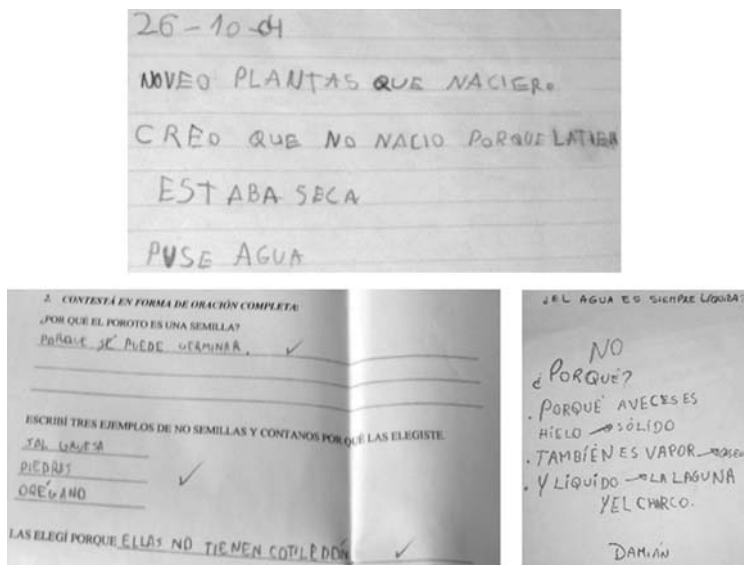 26-10-04
NOVEO PLANTAS QUE NACIERO
CREO QUE NO NACIO PORQUE LATIER
ESTABA SECA
PUSE AGUA
2. CONTESTÁ EN FORMA DE ORACIÓN COMPLETA:
¿POR QUÉ EL POROTO ES UNA SEMILLA?
PORQUE SE PUEDE GERMINAR.
ESCRIBÍ TRES EJEMPLOS DE NO SEMILLAS Y CONTANOS POR QUÉ LAS ELEGISTE.
SAL GRUESA
PIEDRAS
ORÉGANO
LAS ELEGÍ PORQUE ELLAS NO TIENEN COTILEDÓN
¿EL AGUA ES SIEMPRE LÍQUIDA?
NO
¿PORQUÉ?
. PORQUÉ AVECES ES
HIELO → SÓLIDO
. TAMBIÉN ES VAPOR →
. Y LÍQUIDO → LA LAGUNA
Y EL CHARCO.
DAMIÁN